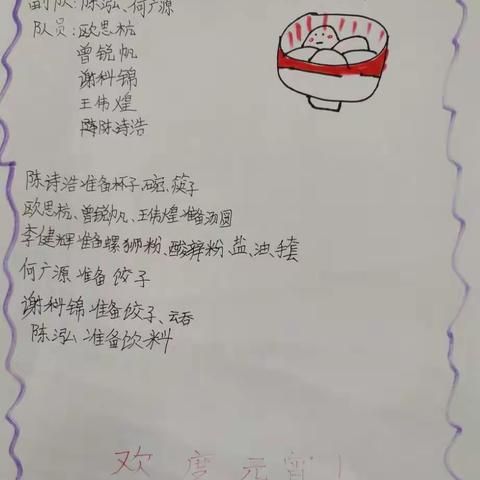 副队:陈泓、何广源
队员:欧思杭
曾锐帆
谢科锦
王伟煌
陈诗浩
陈诗浩准备杯子、碗、筷子
欧思杭、曾锐帆、王伟煌准备汤圆
李健辉准备螺狮粉、酸辣粉、盐、油、手套
何广源准备饺子
谢科锦准备饺子、云吞
陈泓准备饮料
欢度元宵!